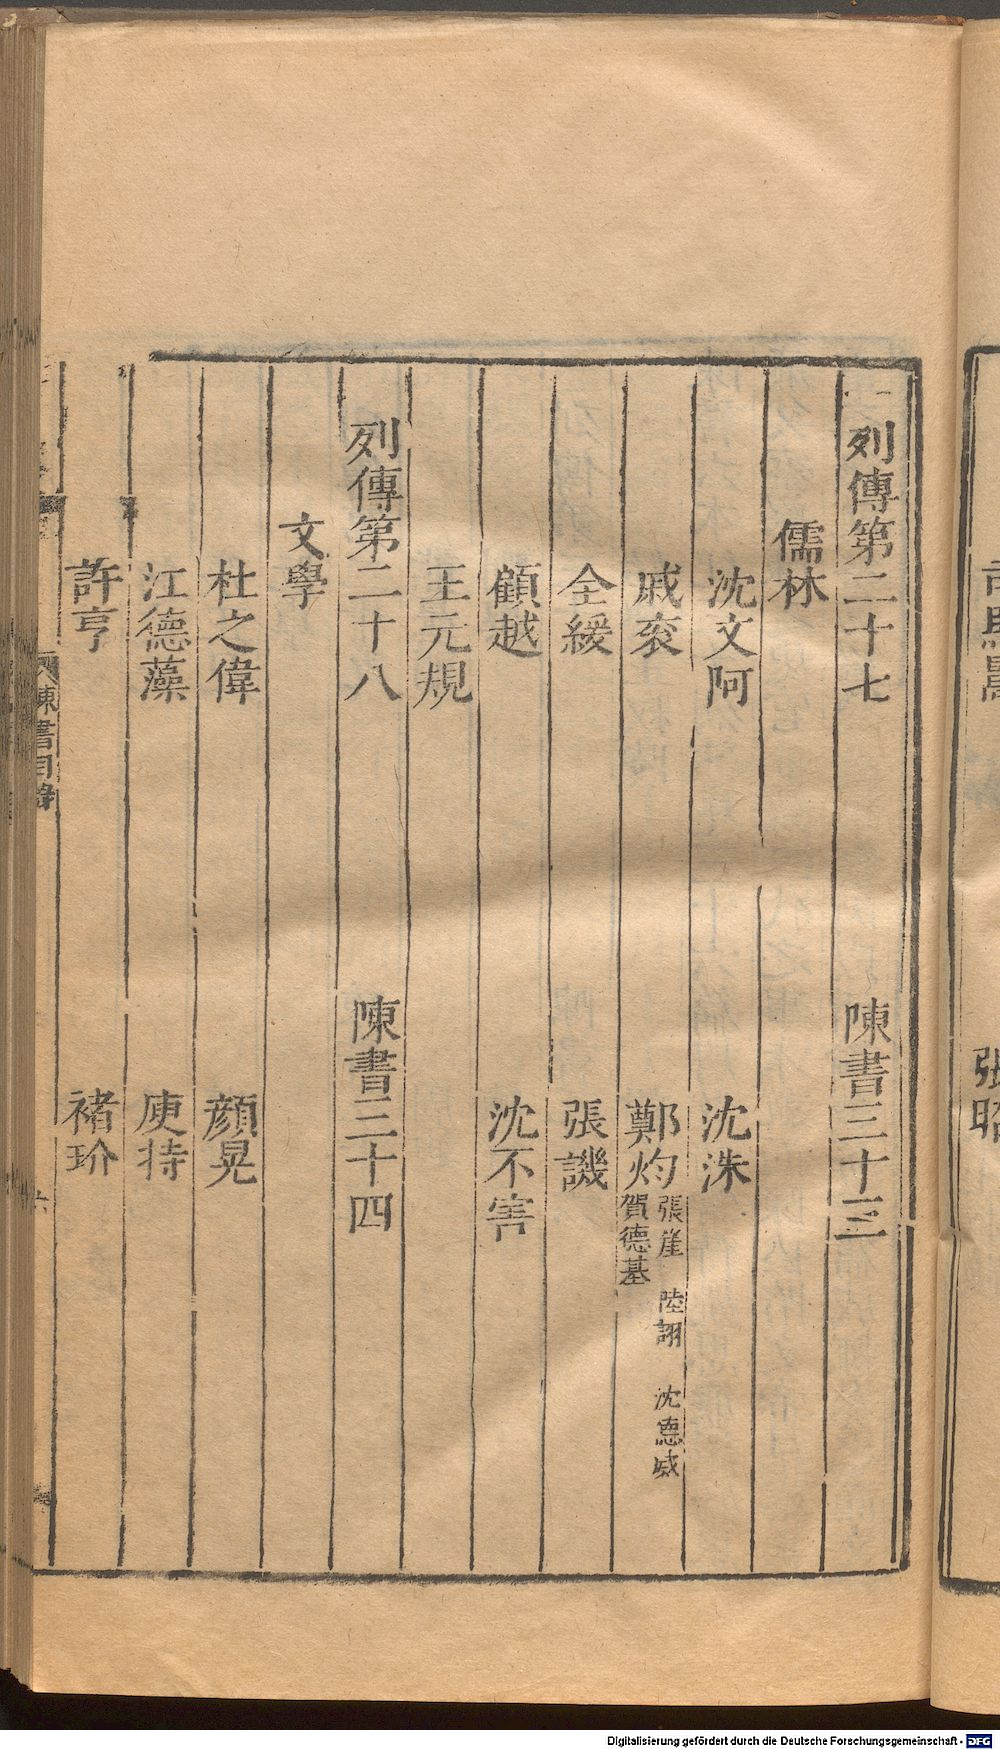 列傳第二十七　陳書三十三
儒林
沈文阿　沈洙
戚衮　鄭灼 張崖　陸詡　沈德威
賀德基
全緩　張譏
顧越　沈不害
王元規
列傳第二十八　陳書三十四
文學
杜之偉　顔晃
江德藻　庾持
許亨　褚玠
陳書目錄
六
張昭
Digitalisierung gefördert durch die Deutsche Forschungsgemeinschaft - DFG